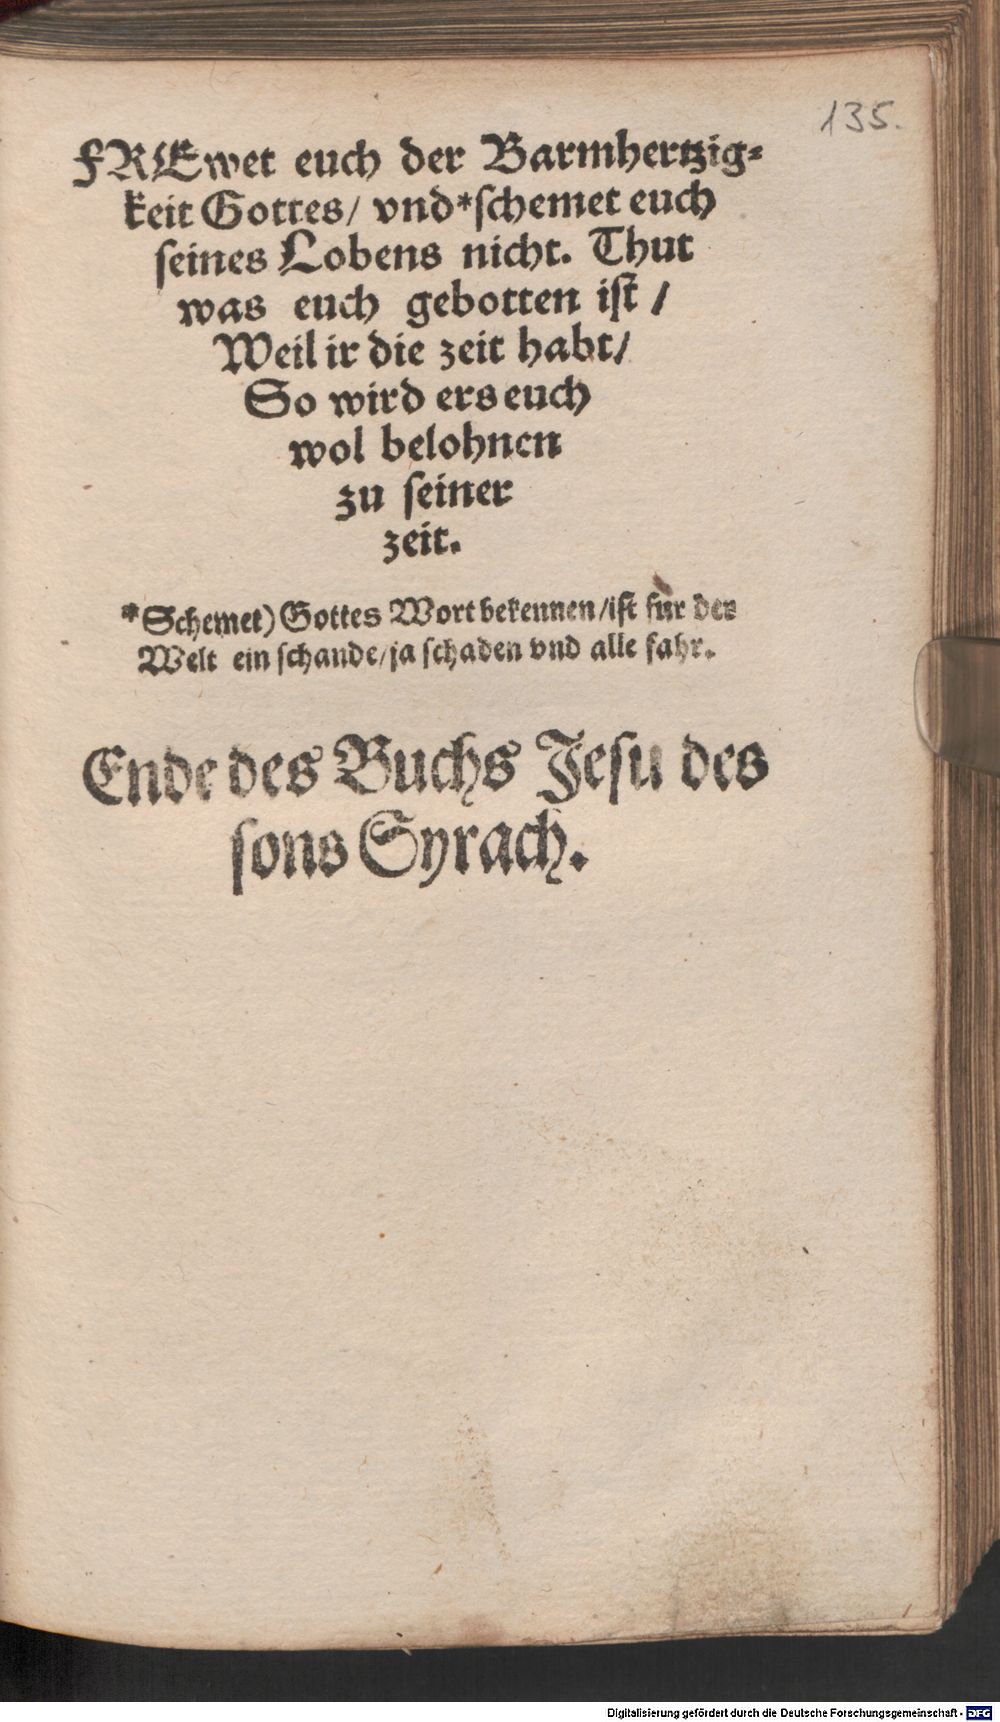 135.
FREwet euch der Barmhertzig⸗
keit Gottes/ vnd*schemet euch
seines Lobens nicht. Thut
was euch gebotten ist /
Weil ir die zeit habt/
So wird ers euch
wol belohnen
zu seiner
zeit.
*Schemet) Gottes Wort bekennen/ist fur der
Welt ein schande/ja schaden vnd alle fahr.
Ende des Buchs Jesu des
sons Syrach.
Digitalisierung gefördert durch die Deutsche Forschungsgemeinschaft - DFG